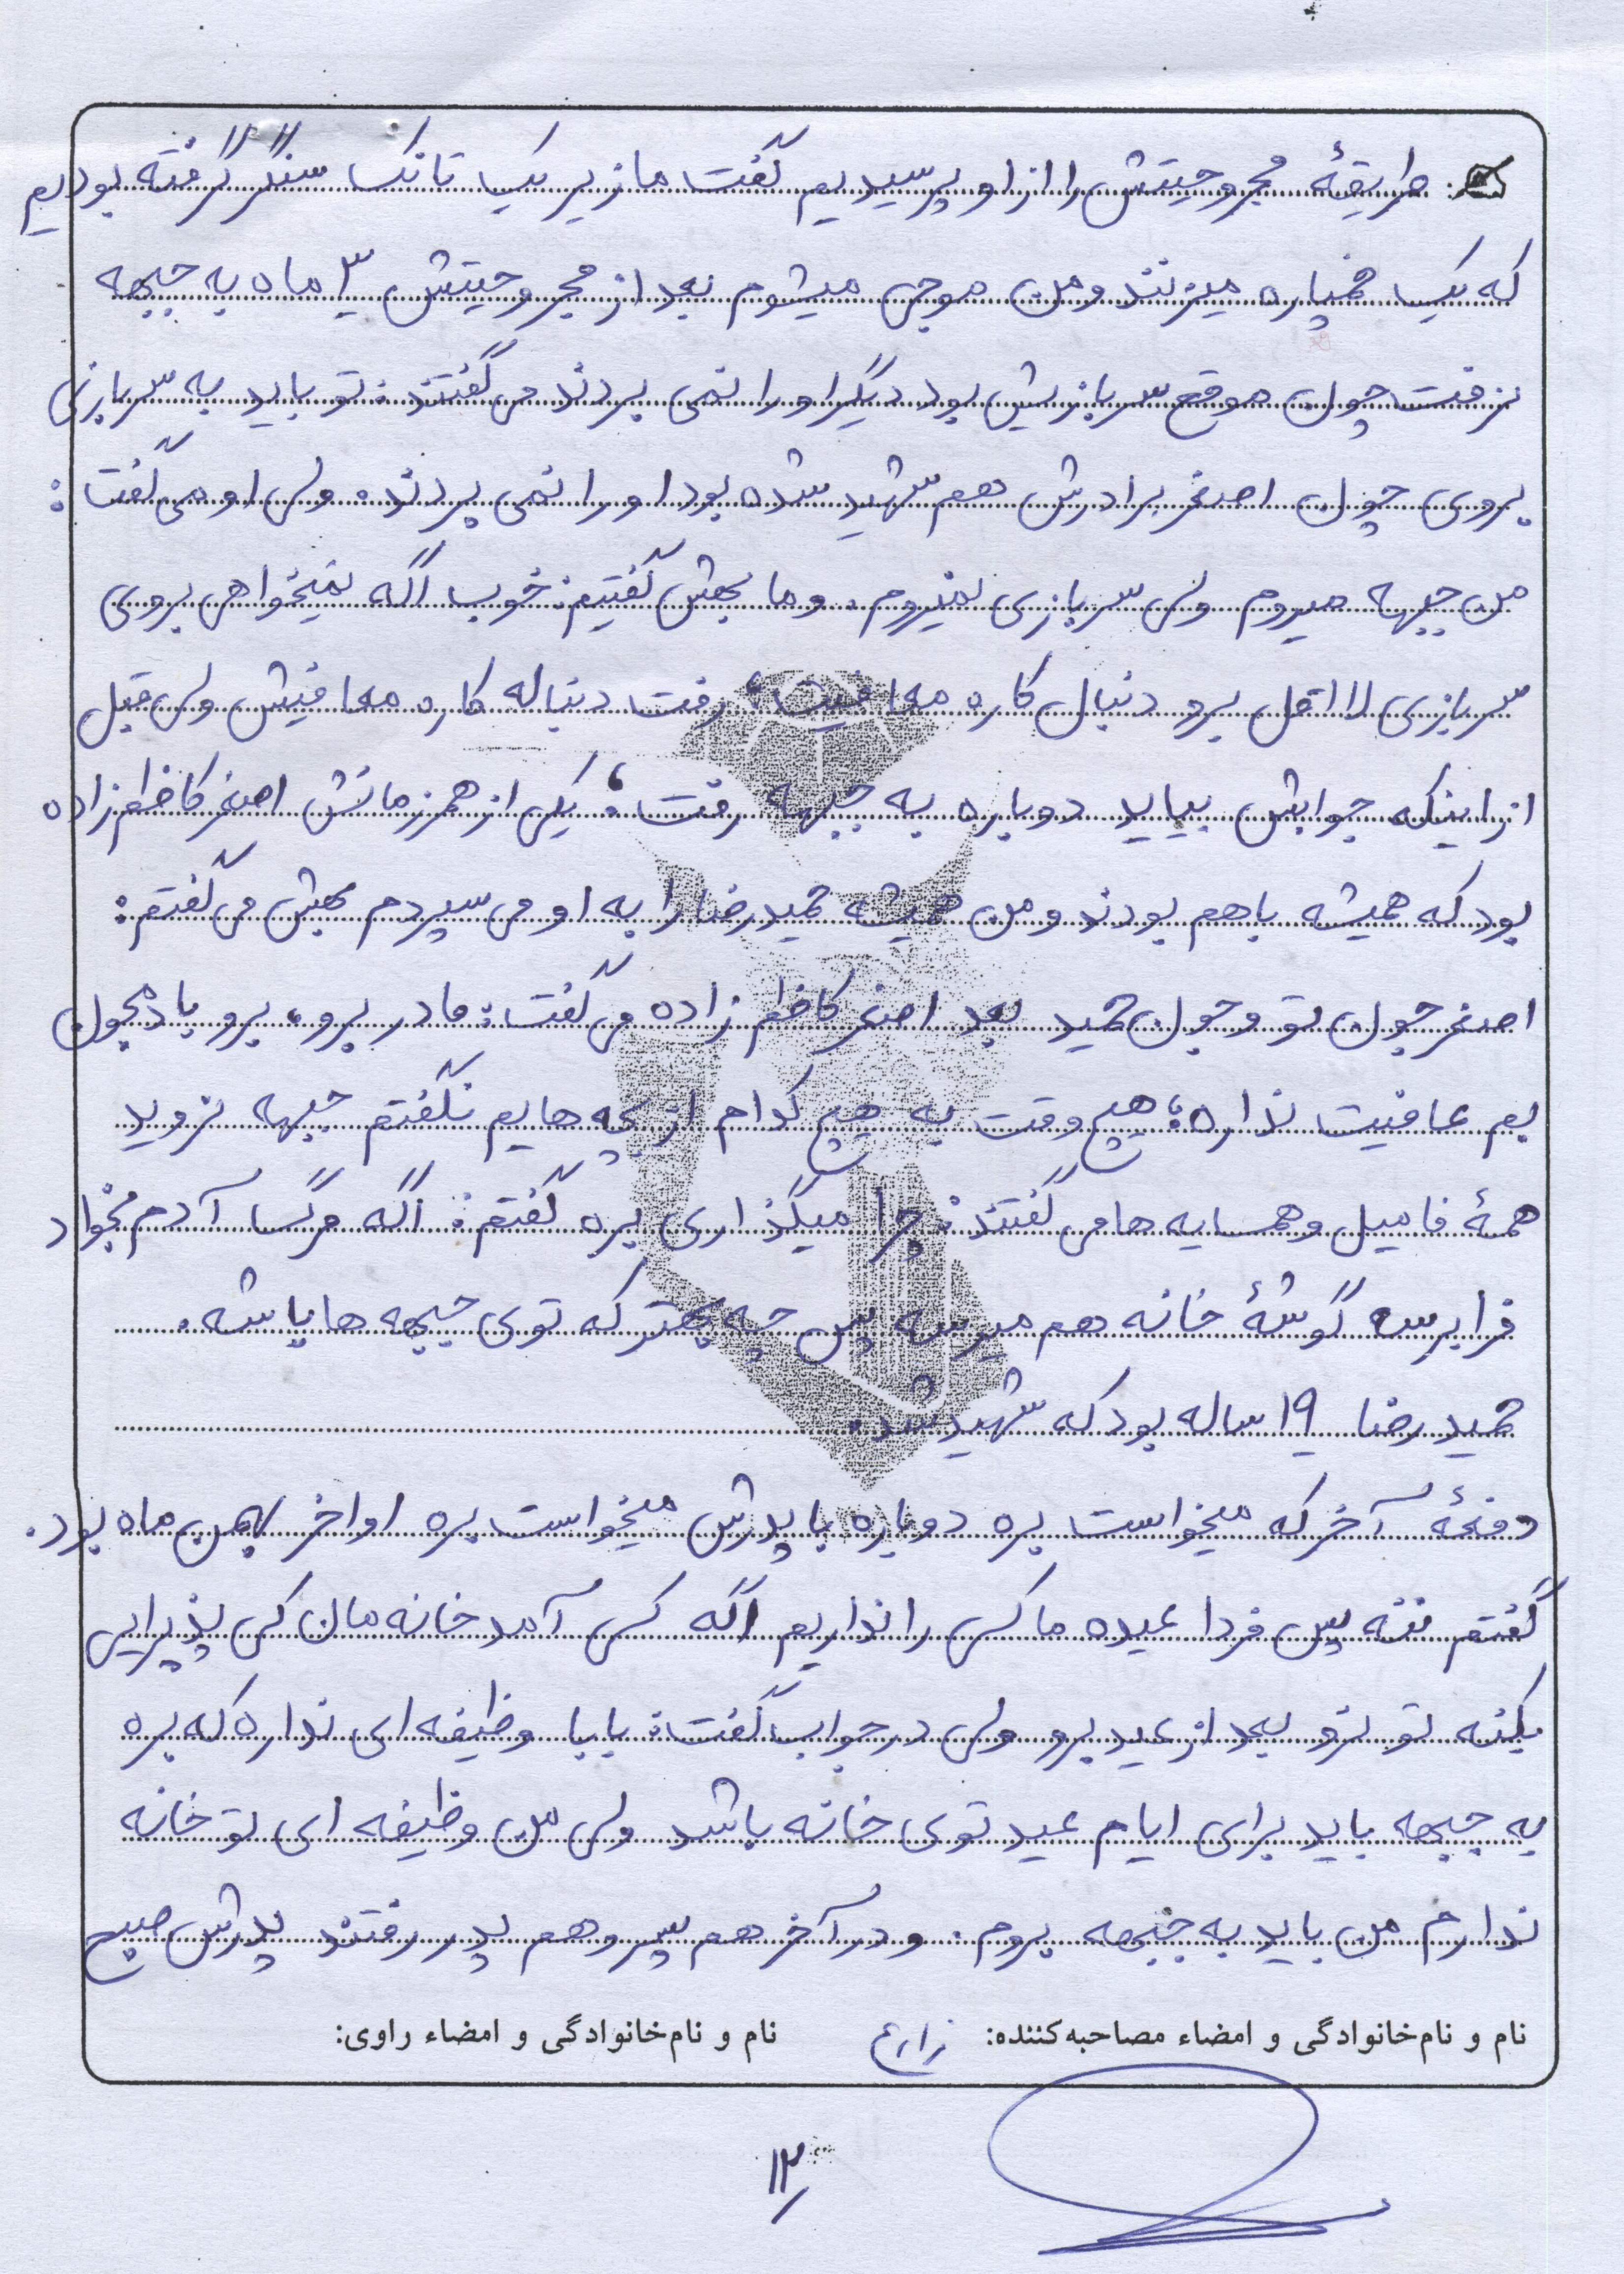 طریقهٔ مجروحیتش را از او پرسیدیم گفت ما زیر یک تانک سنگر گرفته بودیم
که یک خمپاره میزنند و من موجی میشوم بعد از مجروحیتش ۳ ماه به جبهه
نرفت چون موقع سربازیش بود دیگر او را نمی بردند می گفتند: تو باید به سربازی
بروی چون اصغر برادرش هم شهید شده بود او را نمی بردند. ولی او می گفت:
من جبهه میروم ولی سربازی نمیروم. و ما بهش گفتیم: خوب اگه نمیخواهی بروی
سربازی لااقل برو دنبال کاره معافیت، رفت دنباله کاره معافیش ولی قبل
از اینکه جوابش بیاید دوباره به جبهه رفت، یکی از همرزمانش اصغر کاظم زاده
بود که همیشه با هم بودند و من همیشه حمیدرضا را به او می سپردم بهش می گفتم:
اصغر جون تو و جون حمید بعد اصغر کاظم زاده می گفت: مادر برو، برو بادمجون
بم عافیت نداره؛ هیچ وقت به هیچ کدام از بچه هایم نگفتم جبهه نروید
همهٔ فامیل و همسایه ها می گفتند: چرا میگذاری بره گفتم: اگه مرگ آدم بخواد
فرا برسه گوشهٔ خانه هم میرسه پس چه بهتر که توی جبهه ها باشه.
حمیدرضا ۱۹ ساله بود که شهید شد.
دفعهٔ آخر که میخواست بره دوباره با پدرش میخواست بره اواخر بهمن ماه بود.
گفتم ننه پس فردا عیده ما کسی را نداریم اگه کسی آمد خانه مان کی پذیرایی
بکنه تو نرو بعد از عید برو ولی در جواب گفت: بابا وظیفه ای نداره که بره
به جبهه باید برای ایام عید توی خانه باشد ولی من وظیفه ای تو خانه
ندارم من باید به جبهه بروم. و در آخر هم پسر و هم پدر رفتند پدرش صبح
نام و نام‌خانوادگی و امضاء مصاحبه‌کننده: زارع نام و نام‌خانوادگی و امضاء راوی:
۱۳